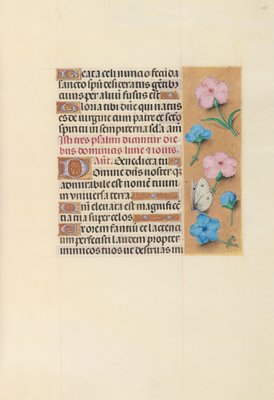 Beata celi nuncio fecunda
sancto spiritu desideratus gentibus
cuius per aluum fusus est
Gloria tibi domine qui natus
es de uirgine cum patre et sancto
spiritu in sempiterna secula amen
Isti tres psalmi dicuntur die
bus dominicis lune et iouis.
Ant. Benedicta tu
Domine dominus noster quam
admirabile est nomen tuum
in uniuersa terra
Quoniam eleuata est magnificen
tia tua super celos
Ex ore infantium et lacten
cium perfecisti laudem propter
inimicos tuos ut destruas ini